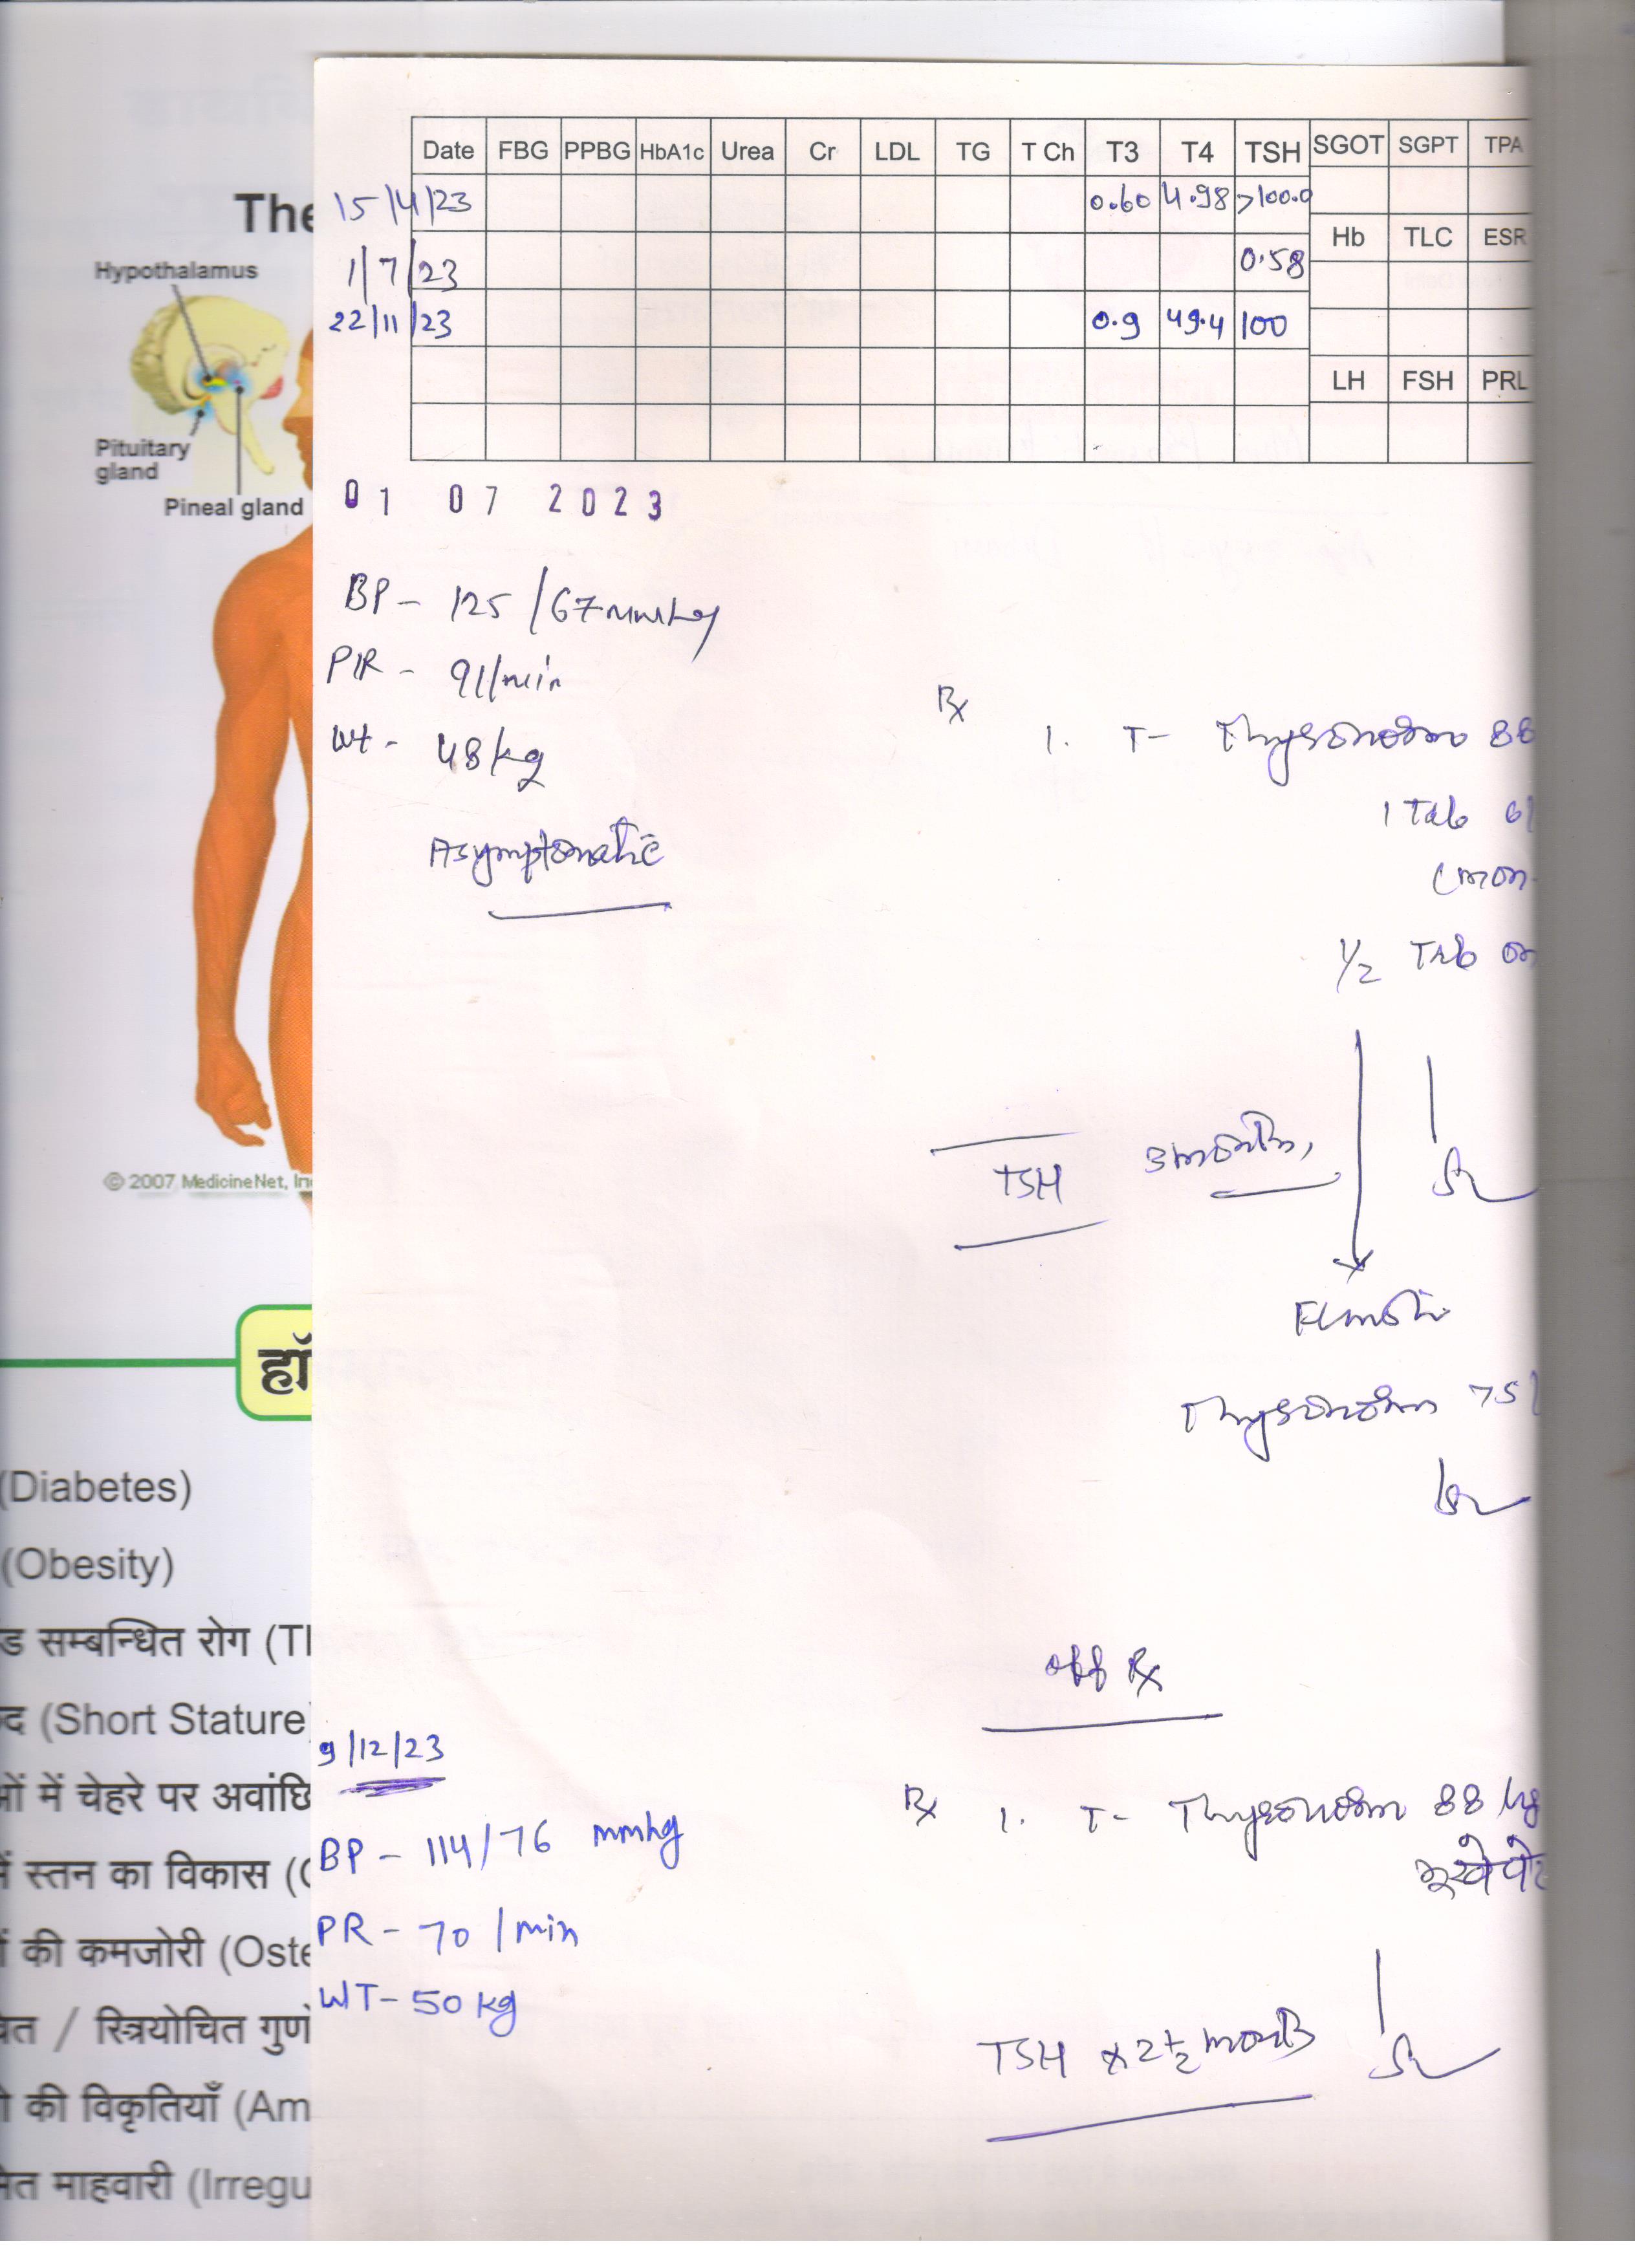 Date FBG PPBG HbA1c Urea Cr LDL TG T Ch T3 T4 TSH SGOT SGPT TPA
15/4/23 0.60 4.98 >100.0
Hb TLC ESR
1/7/23 0.58
22/11/23 0.9 49.4 100
LH FSH PRL
The
Hypothalamus
Pituitary
gland
Pineal gland
01 07 2023
BP - 125/67 mmHg
PR - 91/min
Wt - 48kg
Asymptomatic
Rx 1. T- Thyronorm 88
1 Tab 6/
(mon-
1/2 Tab on
TSH 3 months
© 2007 MedicineNet, In
हॉ
Thyronorm 75
(Diabetes)
(Obesity)
ड सम्बन्धित रोग (Th
द (Short Stature)
ओं में चेहरे पर अवांछि
में स्तन का विकास (G
ं की कमजोरी (Oste
चित / स्त्रियोचित गुणों
ो की विकृतियाँ (Am
मित माहवारी (Irregu
off Rx
9/12/23
BP - 114/76 mmhg
PR - 70/min
WT - 50 kg
Rx 1. T- Thyronorm 88
भूखे पेट
TSH x 2 1/2 month